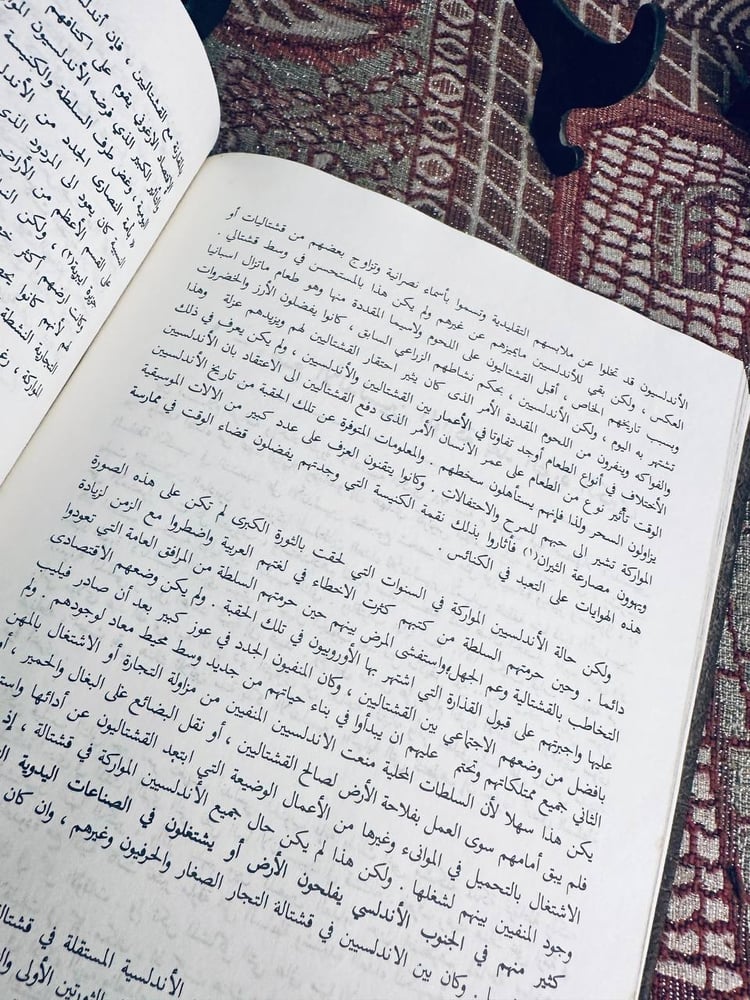 الأندلسيون قد تخلوا عن ملابسهم التقليدية وتسموا بأسماء نصرانية وتزاوج بعضهم من قشتاليات أو
العكس ، ولكن بقي للأندلسيين مايميزهم عن غيرهم ولم يكن هذا بالمستحسن في وسط قشتالي .
وبسبب تاريخهم الخاص ، أقبل القشتاليون على اللحوم ولاسيما المقددة منها وهو طعام ماتزال اسبانيا
تشتهر به اليوم ، ولكن الأندلسيين ، بحكم نشاطهم الزراعي السابق ، كانوا يفضلون الأرز والخضروات
والفواكه وينفرون من اللحوم المقددة الأمر الذى كان يثير احتقار القشتاليين لهم ويزيدهم عزلة . وهذا
الأختلاف في أنواع الطعام أوجد تفاوتا في الأعمار بين القشتاليين والأندلسيين ، ولم يكن يعرف في ذلك
الوقت تأثير نوع من الطعام على عمر الانسان الأمر الذى دفع القشتاليين الى الاعتقاد بان الأندلسيين
يزاولون السحر ولذا فإنهم يستأهلون سخطهم . والمعلومات المتوفرة عن تلك الحقبة من تاريخ الأندلسيين
المواركة تشير الى حبهم للمرح والاحتفالات . وكانوا يتقنون العزف على عدد كبير من الالات الموسيقية
ويهوون مصارعة الثيران(١) فأثاروا بذلك نقمة الكنيسة التي وجدتهم يفضلون قضاء الوقت في ممارسة
هذه الهوايات على التعبد في الكنائس .
ولكن حالة الأندلسيين المواركة في السنوات التي لحقت بالثورة الكبرى لم تكن على هذه الصورة
دائما . وحين حرمتهم السلطة من كتبهم كثرت الاخطاء في لغتهم العربية واضطروا مع الزمن لزيادة
التخاطب بالقشتالية وعم الجهل واستفشى المرض بينهم حين حرمتهم السلطة من المرافق العامة التي تعودوا
عليها واجبرتهم على قبول القذارة التي اشتهر بها الأوروبيون في تلك الحقبة . ولم يكن وضعهم الاقتصادى
بافضل من وضعهم الاجتماعي بين القشتاليين ، وكان المنفيون الجدد في عوز كبير بعد أن صادر فيليب
الثاني جميع ممتلكاتهم وتحتم عليهم ان يبدأوا في بناء حياتهم من جديد وسط محيط معاد لوجودهم . ولم
يكن هذا سهلا لأن السلطات المحلية منعت الاندلسيين المنفيين من مزاولة التجارة أو الاشتغال بالمهن
فلم يبق أمامهم سوى العمل بفلاحة الأرض لصالح القشتاليين ، أو نقل البضائع على البغال والحمير ، أو
الاشتغال بالتحميل في الموانىء وغيرها من الأعمال الوضيعة التي ابتعد القشتاليون عن أدائها
وجود المنفيين بينهم لشغلها . ولكن هذا لم يكن حال جميع الأندلسيين المواركة في قشتالة ، إذ
كثير منهم في الجنوب الأندلسي يفلحون الأرض أو يشتغلون في الصناعات اليدوية
. وكان بين الاندلسيين في قشتالة التجار الصغار والحرفيون وغيرهم ، وان كان
الأندلسية المستقلة في
الثورتين الأولى
مع القشتاليين ، فإن
الاقتصاد الارغوني يقوم على اكتافهم
الكبير الذى فرضه الأندلسيون
، رفض طرف السلطة والكنيسة
النصارى الجدد من
كان يعود الى المردود الذى
على القسم الأعظم من
جزيرة ايبرية(٢) ، ولكن
ارضهم اكثر
لهم لأنهم كانوا
التجارية النشطة
المواركة ،